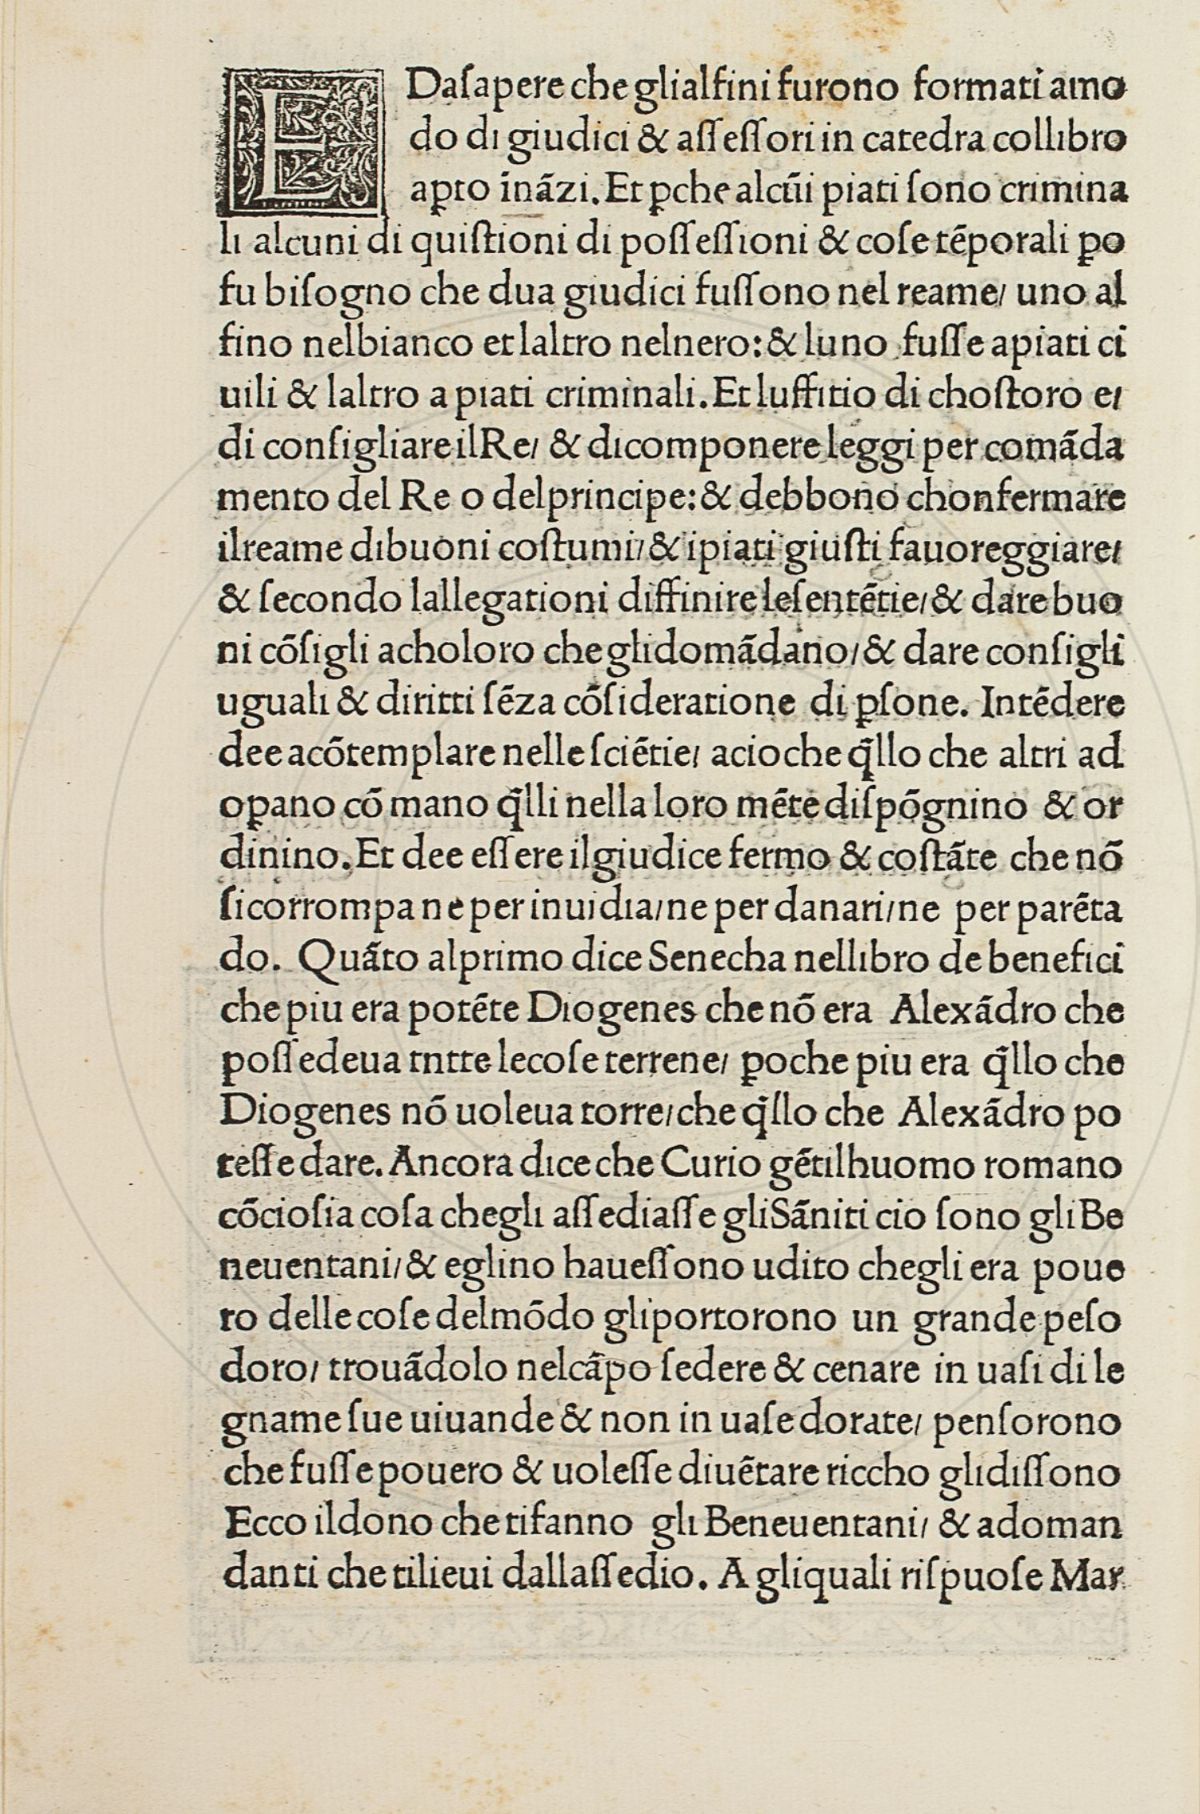 EDaſapere che glialfini furono formati amo
do di giudici & aſſeſſori in catedra collibro
aꝑto īnāzi. Et ꝑche alcūi piati ſono crimina
li alcuni di quiſtioni di poſſeſſioni & coſe tēporali ꝑo
fu biſogno che dua giudici fuſſono nel reame/ uno al
fino nelbianco et laltro nelnero: & luno fuſſe apiati ci
uili & laltro a piati criminali. Et luffitio di choſtoro e/
di conſigliare ilRe/ & dicomponere leggi per comāda
mento del Re o delprincipe: & debbono chonfermare
ilreame dibuoni coſtumi/ & ipiati giuſti fauoreggiare/
& ſecondo lallegationi diffinire leſentētie/ & dare buo
ni cōſigli acholoro che glidomādano/ & dare conſigli
uguali & diritti ſēza cōſideratione di ꝑſone. Intēdere
dee acōtemplare nelle ſciētie/ acioche q̄llo che altri ad
oꝑano cō mano q̄lli nella loro mēte diſpōgnino & or
dinino. Et dee eſſere ilgiudice fermo & coſtāte che nō
ſicorrompa ne per inuidia/ne per danari/ne per parēta
do. Quāto alprimo dice Senecha nellibro de benefici
che piu era potēte Diogenes che nō era Alexādro che
poſſedeua tntte lecoſe terrene/ ꝑoche piu era q̄llo che
Diogenes nō uoleua torre/che q̄llo che Alexādro po
teſſe dare. Ancora dice che Curio gētilhuomo romano
cōcioſia coſa chegli aſſediaſſe gliSāniti cio ſono gliBe
neuentani/ & eglino haueſſono udito chegli era poue
ro delle coſe delmōdo gliportorono un grande peſo
doro/ trouādolo nelcāpo ſedere & cenare in uaſi di le
gname ſue uiuande & non in uaſe dorate/ penſorono
che fuſſe pouero & uoleſſe diuētare riccho glidiſſono
Ecco ildono che tifanno gli Beneuentani/ & adoman
danti che tilieui dallaſſedio. A gliquali riſpuoſe Mar